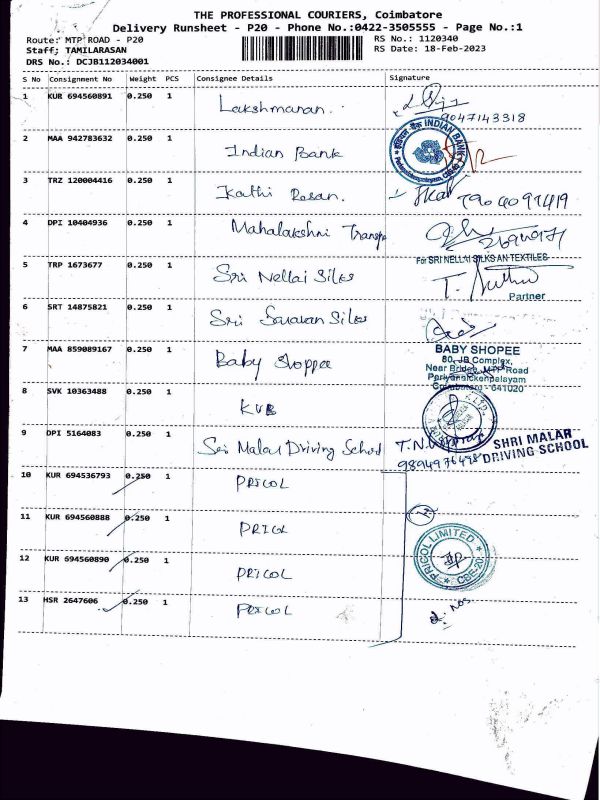 THE PROFESSIONAL COURIERS, Coimbatore
Delivery Runsheet - P20 - Phone No.:0422-3505555 - Page No.:1
Route: MTP ROAD - P20
RS No.: 1120340
Staff; TAMILARASAN
RS Date: 18-Feb-2023
DRS No.: DCJB112034001
S No Consignment No Weight PCS Consignee Details Signature
1 KUR 694560891 0.250 1 Lakshmanan.
9047143318
2 MAA 942783632 0.250 1 Indian Bank
INDIAN BANK
3 TRZ 120004416 0.250 1 Kathi Rosan.
4 DPI 10404936 0.250 1 Mahalakshmi Transpo
5 TRP 1673677 0.250 1 Sri Nellai Silks
For SRI NELLAI SILKS AN TEXTILES
Partner
6 SRT 14875821 0.250 1 Sri Saravan Silks
7 MAA 859089167 0.250 1 Baby Shoppee
BABY SHOPEE
80, JB Complex,
Near Bridge, MTP Road
Periyanaickenpalayam
Coimbatore - 641020
8 SVK 10363488 0.250 1 KVB
9 DPI 5164083 0.250 1 Sri Malar Driving School
SHRI MALAR
DRIVING SCHOOL
9894976498
10 KUR 694536793 0.250 1 PRICOL
11 KUR 694560888 0.250 1 PRICOL
12 KUR 694560890 0.250 1 PRICOL
PRICOL LIMITED
CBE-20.
13 HSR 2647606 0.250 1 PRICOL